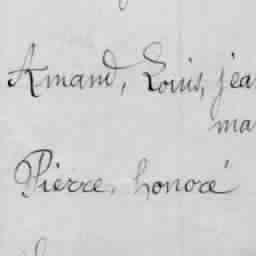 Amand, Louis, jea
ma
Pierre, honoré